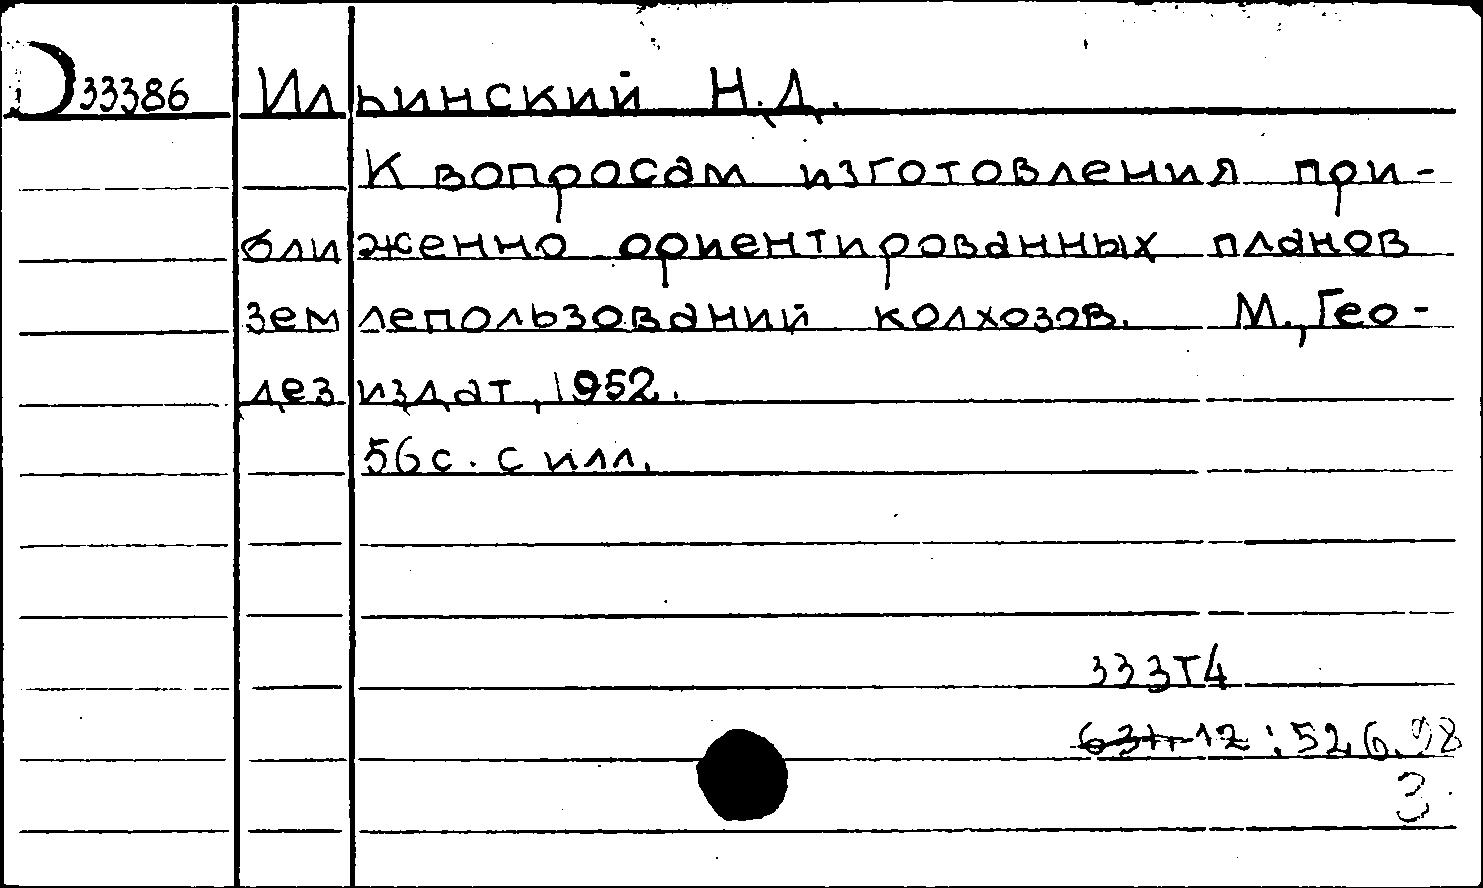 D33386 Ильинский Н.Д.
К вопросам изготовления при-
ближенно ориентированных планов
землепользований колхозов. М., Гео-
дезиздат, 1952.
56 с. с илл.
333Т4
:526.98
3